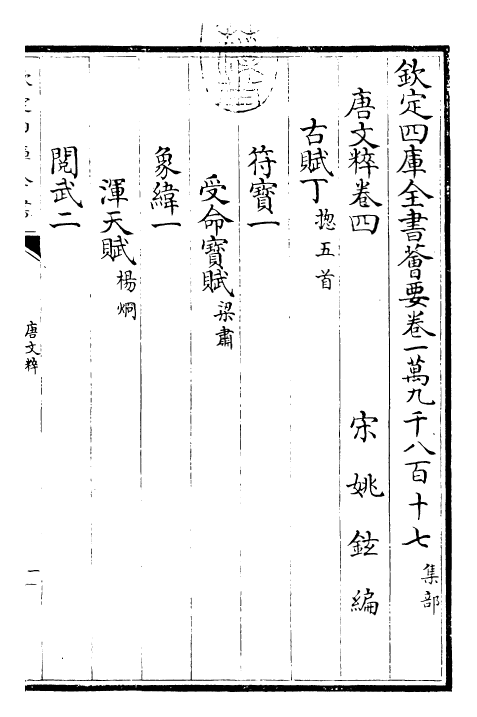 欽定四庫全書薈要卷一萬九千八百十七 集部
唐文粹卷四 宋 姚鉉 編
古賦丁 揔五首
符寶一
受命寶賦 梁肅
象緯一
渾天賦 楊炯
閱武二
唐文粹